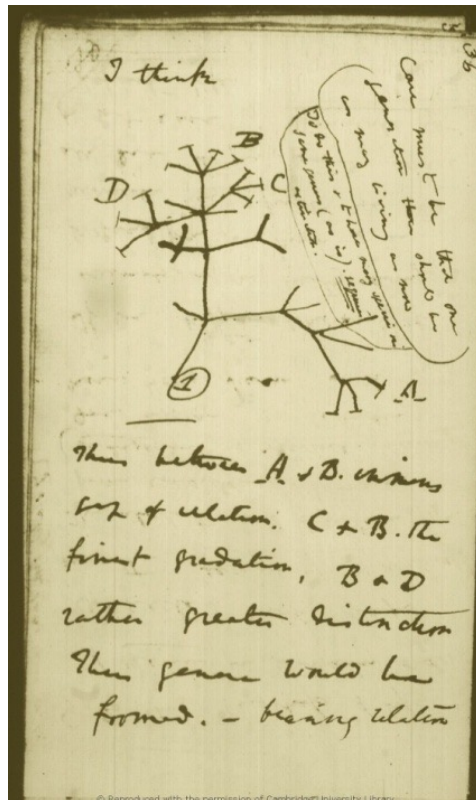 36
I think
Case must be that one
generation then should be
as many living as now
To do this & to have many species in
same genus (as is). requires
extinction.
B
D
C
A
1
Thus between A & B. immens
gap of relation. C & B. the
finest gradation, B & D
rather greater distinction
Thus genera would be
formed. — bearing relation
© Reproduced with the permission of Cambridge University Library